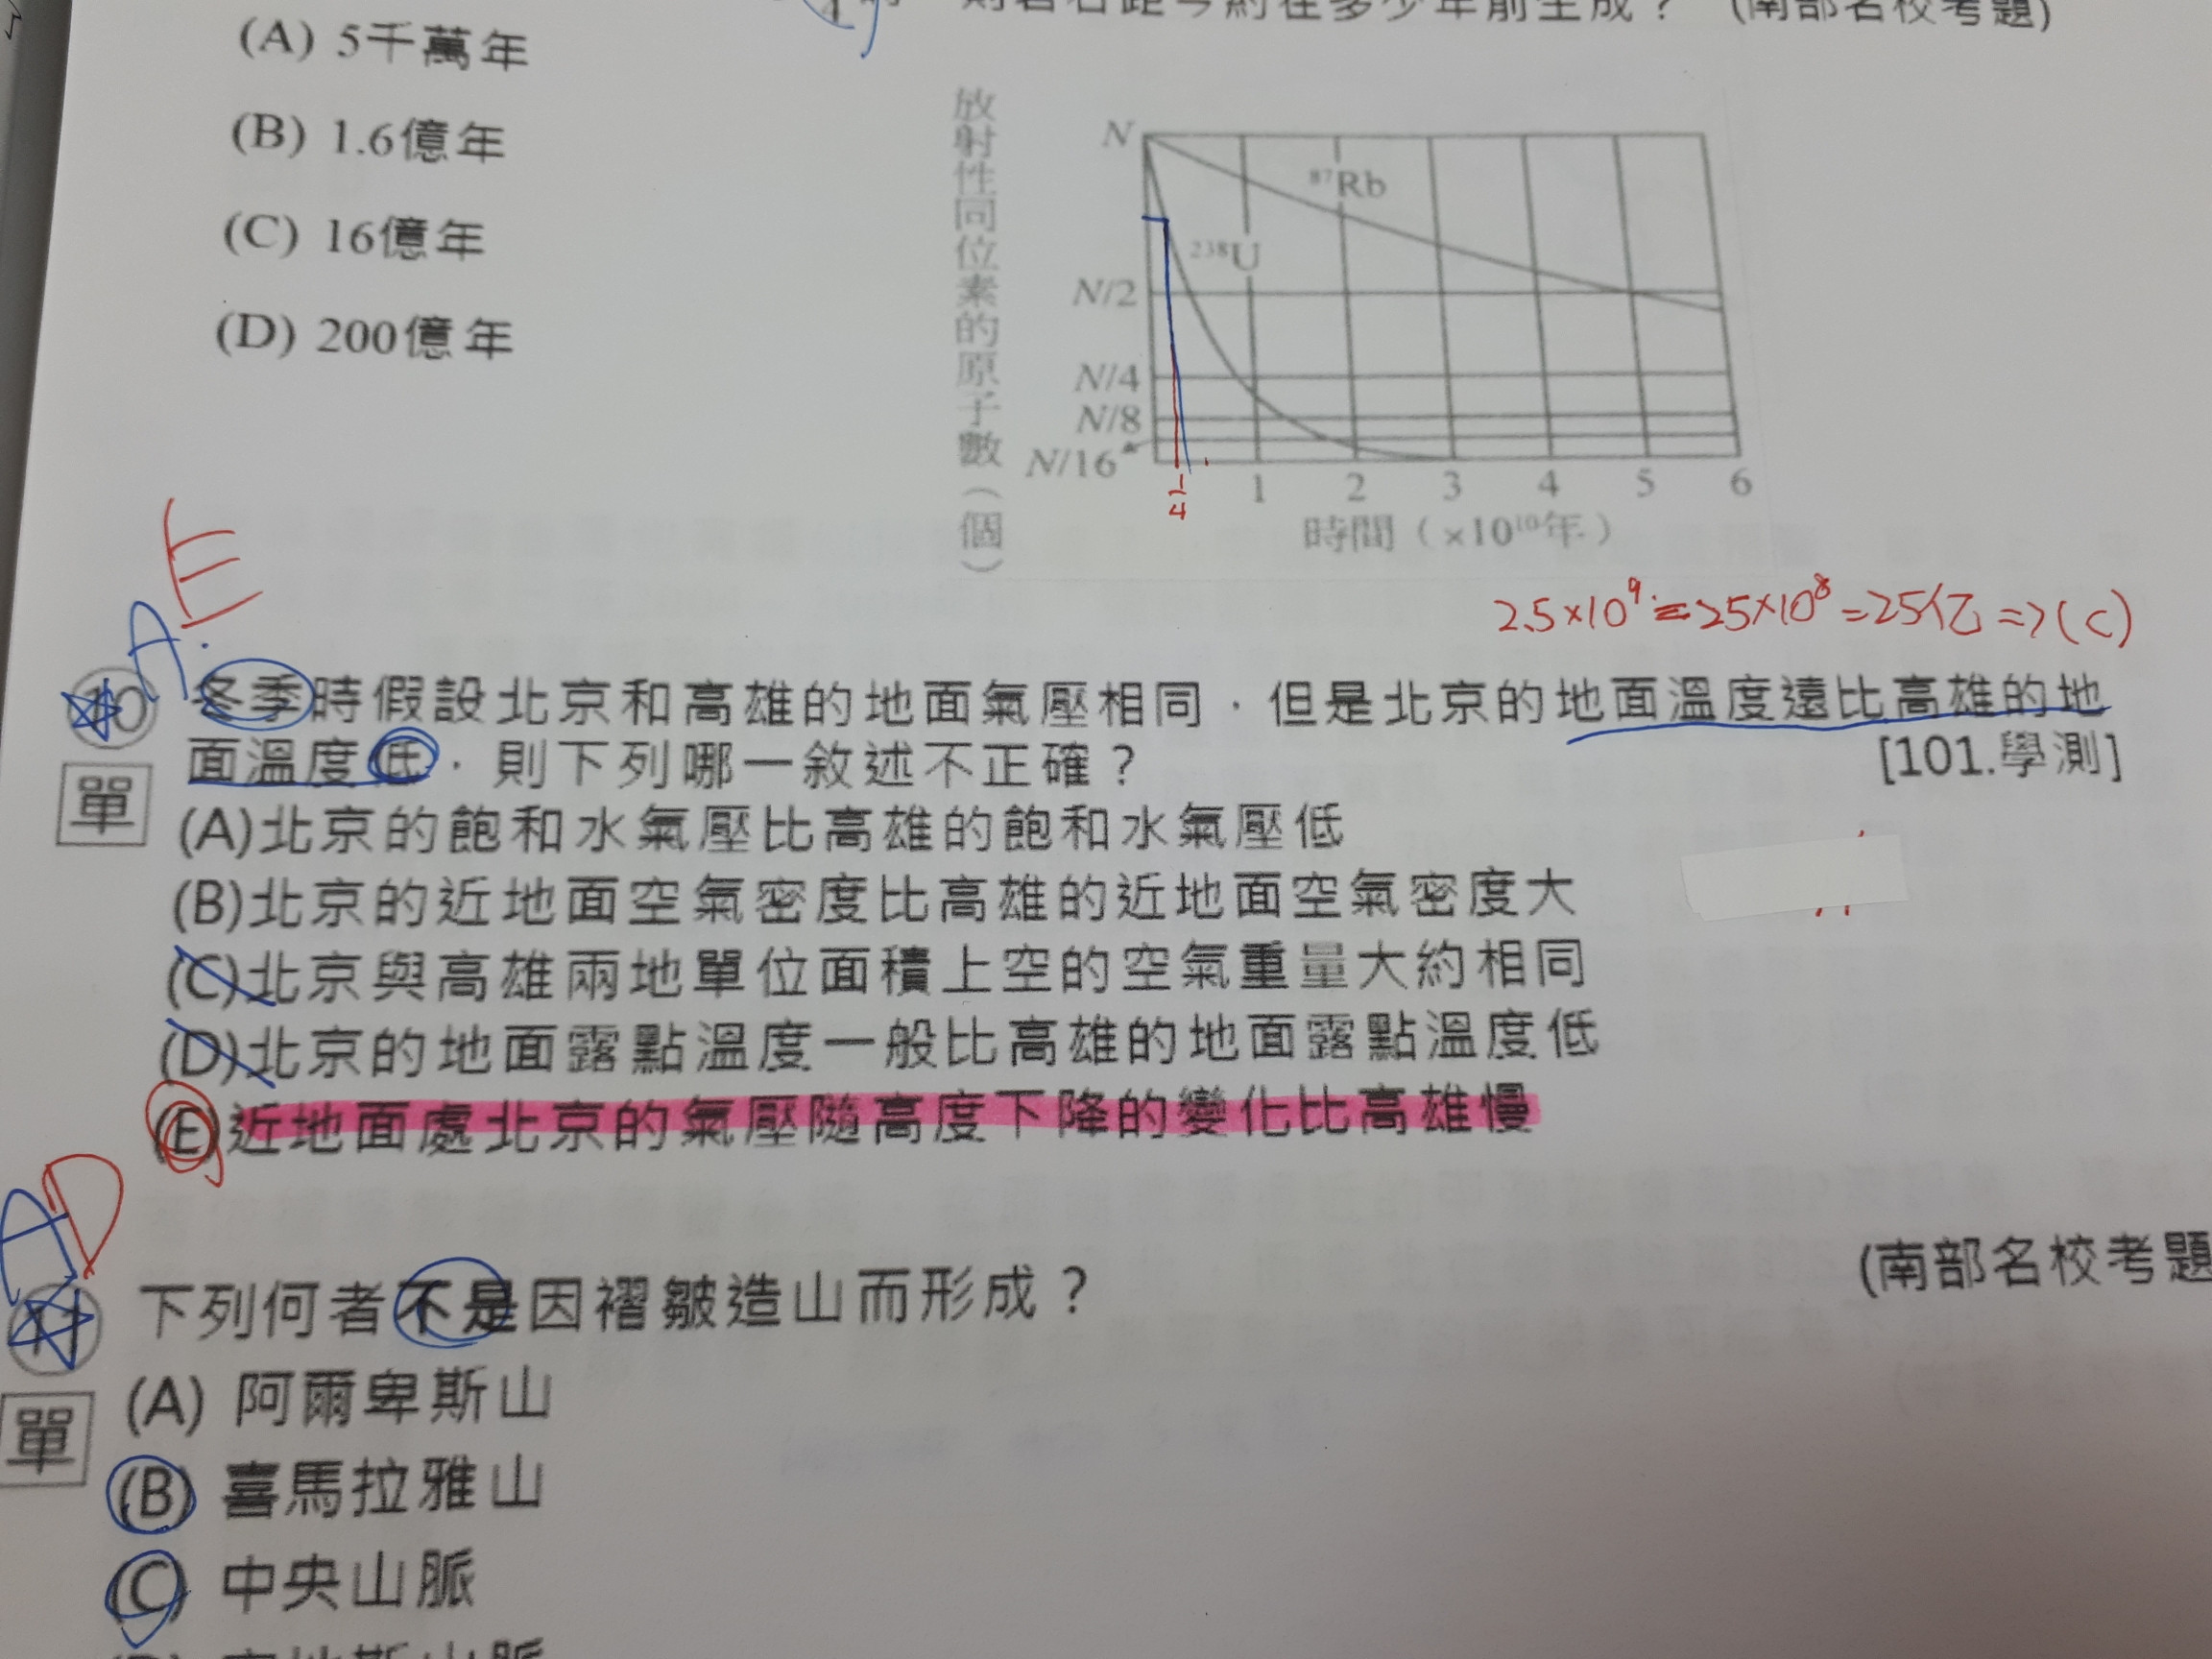 則岩石距今約在多少年前生成？ (南部名校考題)
(A) 5千萬年
(B) 1.6億年
(C) 16億年
(D) 200億年
放射性同位素的原子數（個）
N
N/2
N/4
N/8
N/16
⁸⁷Rb
²³⁸U
1 2 3 4 5 6
1/4
時間（×10¹⁰年）
2.5×10⁹=25×10⁸=25亿=>(C)
E
A.
10 冬季時假設北京和高雄的地面氣壓相同，但是北京的地面溫度遠比高雄的地
面溫度低，則下列哪一敘述不正確？ [101.學測]
單
(A)北京的飽和水氣壓比高雄的飽和水氣壓低
(B)北京的近地面空氣密度比高雄的近地面空氣密度大
(C)北京與高雄兩地單位面積上空的空氣重量大約相同
(D)北京的地面露點溫度一般比高雄的地面露點溫度低
(E)近地面處北京的氣壓隨高度下降的變化比高雄慢
A D
11 下列何者不是因褶皺造山而形成？ (南部名校考題
單
(A) 阿爾卑斯山
(B) 喜馬拉雅山
(C) 中央山脈